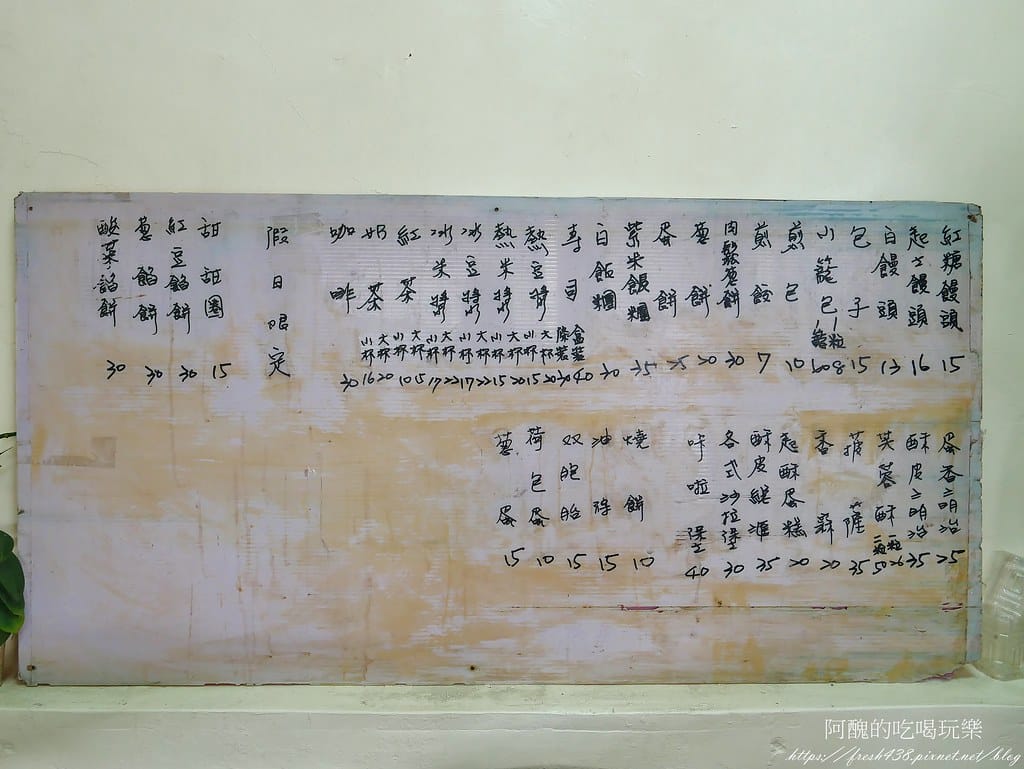 紅糖饅頭 15
起士饅頭 16
白饅頭 13
包子 15
小籠包 粒8 籠60
煎包 10
煎餃 7
肉鬆蔥餅 30
蔥餅 20
蛋餅 25
紫米飯糰 35
白飯糰 30
壽司 盒裝40 條裝30
熱豆漿 大杯20 小杯15
熱米漿 大杯20 小杯15
冰豆漿 大杯22 小杯17
冰米漿 大杯22 小杯17
紅茶 大杯15 小杯10
奶茶 大杯20 小杯16
咖啡 30
假日限定
甜甜圈 15
紅豆餡餅 30
蔥餡餅 30
酸菜餡餅 30
蛋香三明治 25
酥皮三明治 35
芙蓉酥 一粒26 二粒50
菠蘿 35
香酥 20
起酥蛋糕 20
酥皮 35
各式沙拉堡 30
咔啦堡 40
燒餅 10
油條 15
双胞胎 15
荷包蛋 10
蔥蛋 15
阿醜的吃喝玩樂
https://fresh438.pixnet.net/blog